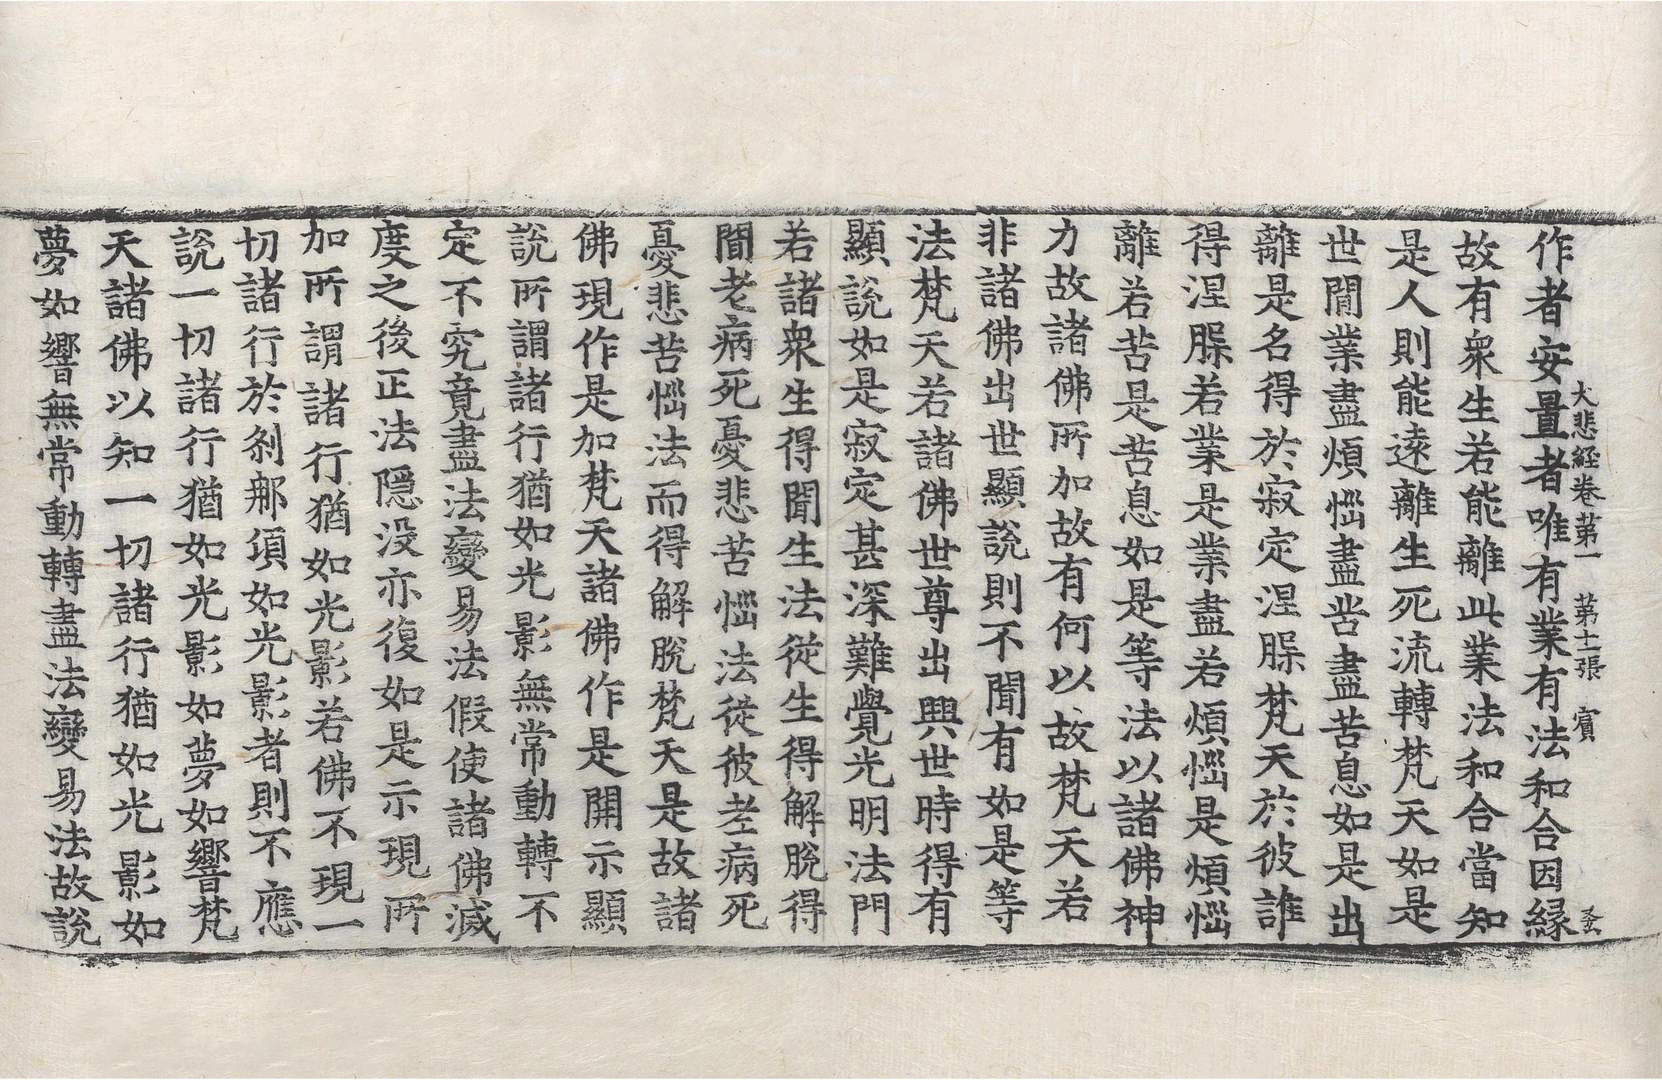 大悲経卷第一　第十一張　賓
作者安置者唯有業有法和合因緣
故有衆生若能離此業法和合當知
是人則能遠離生死流轉梵天如是
世閒業盡煩惱盡苦盡苦息如是出
離是名得於寂定涅槃梵天於彼誰
得涅槃若業是業盡若煩惱是煩惱
離若苦是苦息如是等法以諸佛神
力故諸佛所加故有何以故梵天若
非諸佛出世顯說則不聞有如是等
法梵天若諸佛世尊出興世時得有
顯說如是寂定甚深難覺光明法門
若諸衆生得聞生法從生得解脫得
聞老病死憂悲苦惱法從彼老病死
憂悲苦惱法而得解脫梵天是故諸
佛現作是加梵天諸佛作是開示顯
說所謂諸行猶如光影無常動轉不
定不究竟盡法變易法假使諸佛滅
度之後正法隱没亦復如是示現所
加所謂諸行猶如光影若佛不現一
切諸行於刹那須如光影者則不應
說一切諸行猶如光影如夢如響梵
天諸佛以知一切諸行猶如光影如
夢如響無常動轉盡法變易法故說